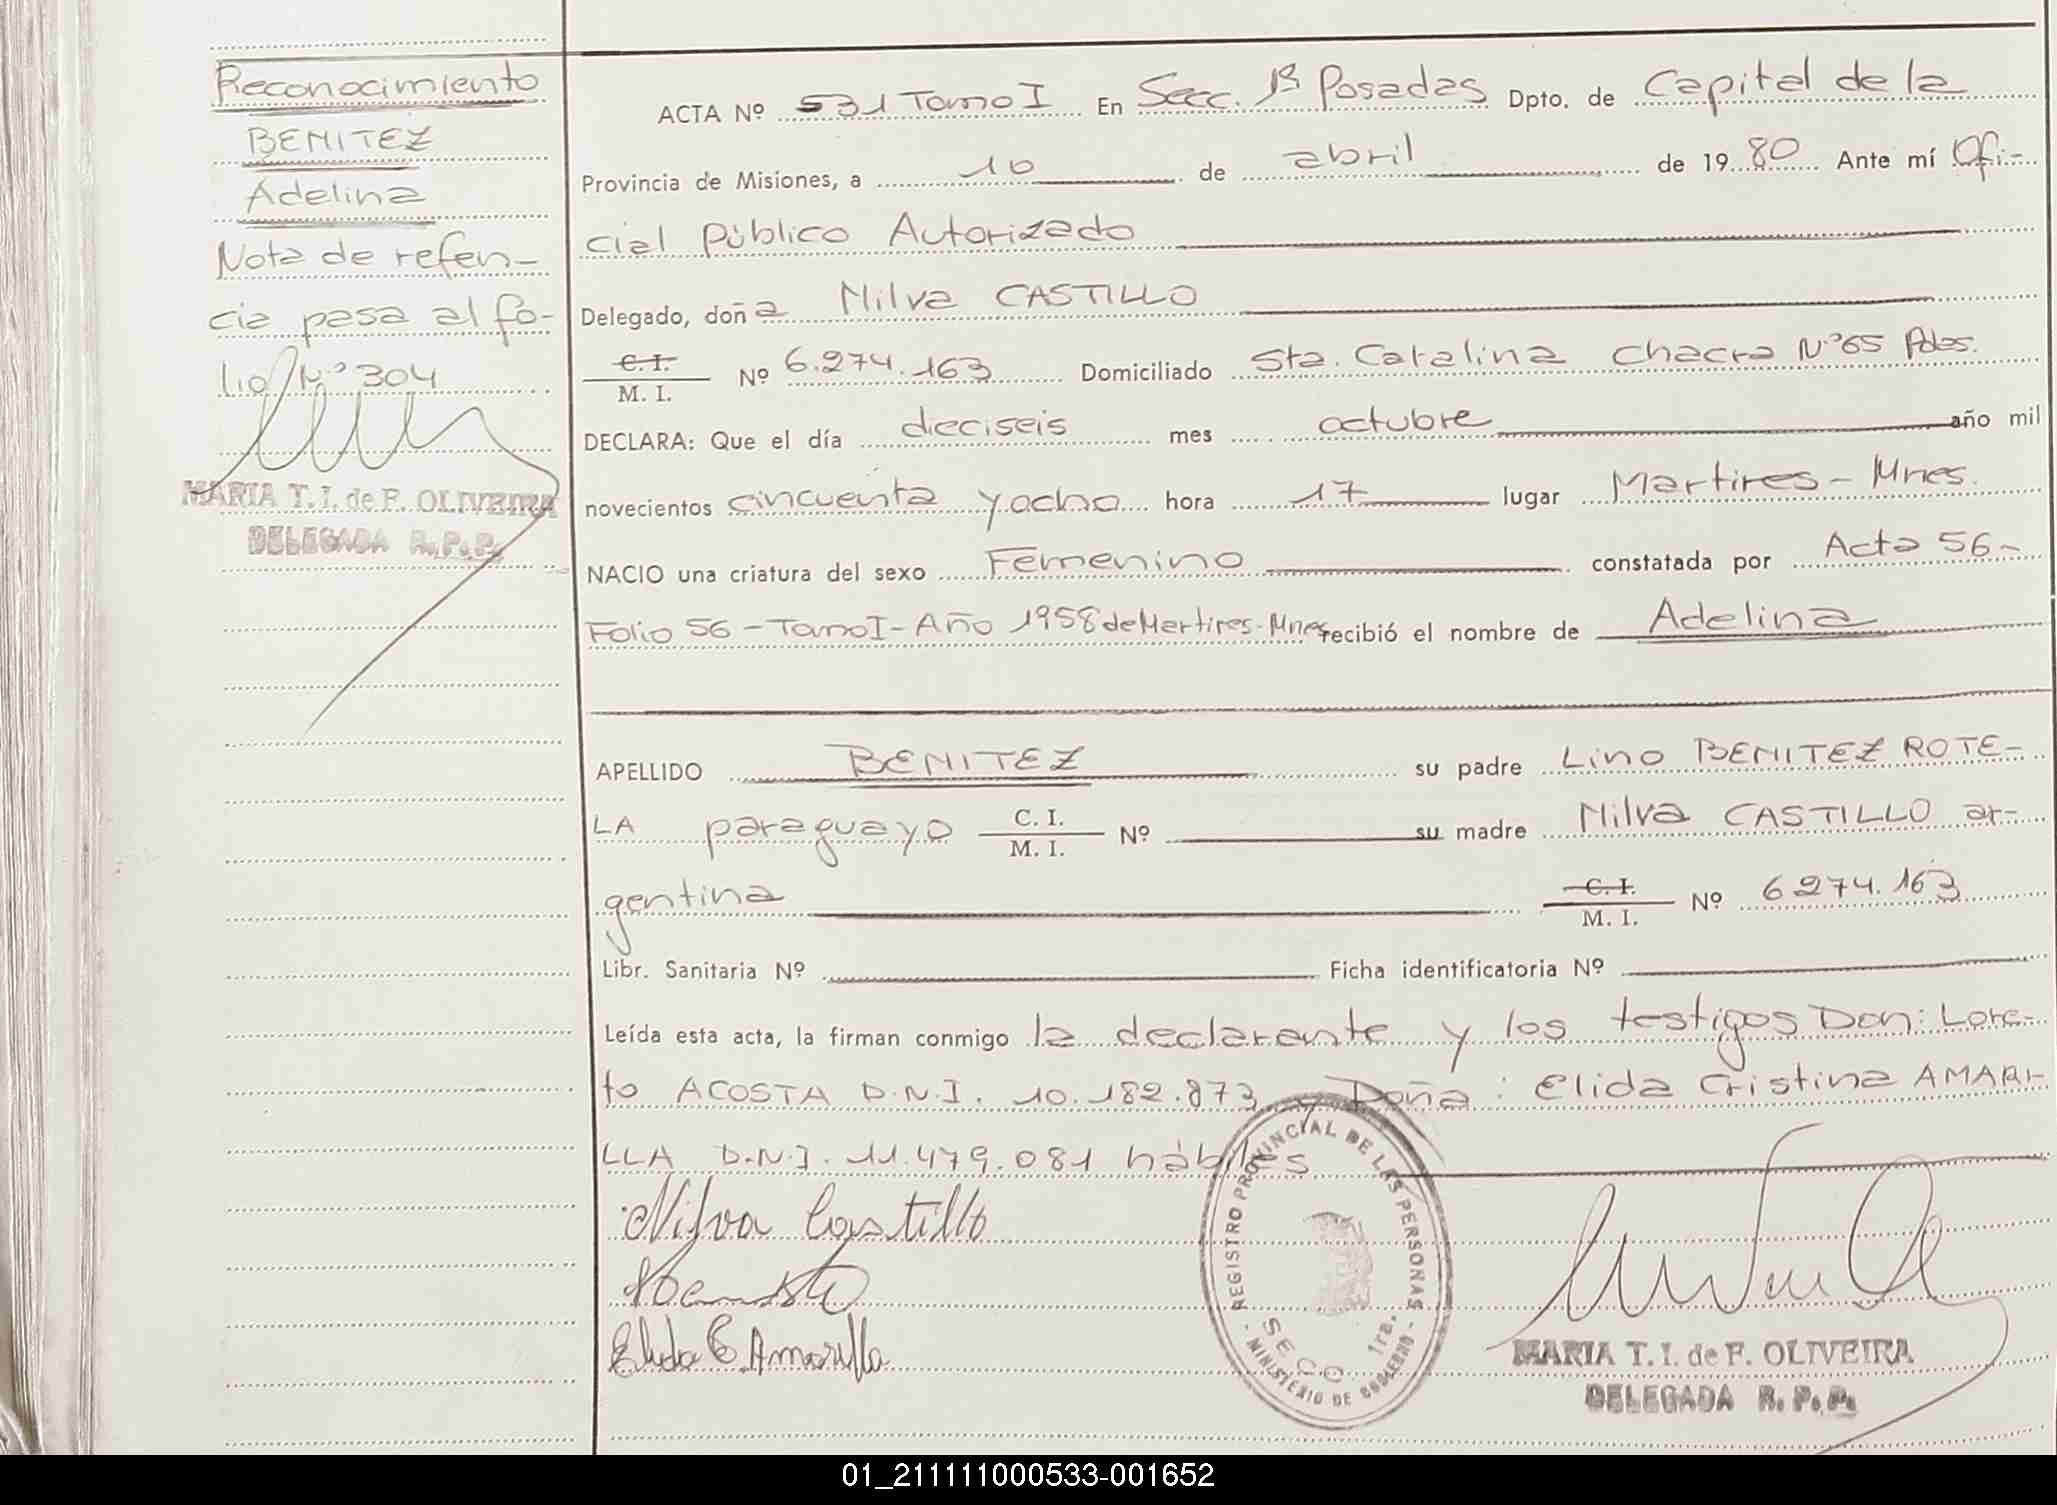 Reconocimiento
BENITEZ
Adelina
Nota de refen-
cia pasa al fo-
lio Nº 304
MARIA T. I. de F. OLIVEIRA
DELEGADA R. P. P.
ACTA Nº 531 Tomo I En Secc. 1ª Posadas Dpto. de Capital de la
Provincia de Misiones, a 10 de abril de 1980 Ante mí Ofi-
cial Público Autorizado
Delegado, doña Nilva CASTILLO
C. I. / M. I. Nº 6.274.163 Domiciliado Sta. Catalina chacra Nº 65 Pdas.
DECLARA: Que el día dieciseis mes octubre año mil
novecientos cincuenta y ocho hora 17 lugar Martires - Mnes.
NACIO una criatura del sexo Femenino constatada por Acta 56-
Folio 56 - Tomo I - Año 1958 de Martires - Mnes recibió el nombre de Adelina
APELLIDO BENITEZ su padre Lino BENITEZ ROTE-
LA paraguayo C. I. / M. I. Nº su madre Nilva CASTILLO ar-
gentina C. I. / M. I. Nº 6 274.163
Libr. Sanitaria Nº Ficha identificatoria Nº
Leída esta acta, la firman conmigo la declarante y los testigos Don: Lore-
to ACOSTA D.N.I. 10.182.873 y Doña: Elida Cristina AMARI-
LLA D.N.I. 11.479.081 hábiles
Nilva Castillo
Elida C. Amarilla
REGISTRO PROVINCIAL DE LAS PERSONAS
SECC. 1ra.
- MINISTERIO DE GOBIERNO -
MARIA T. I. de F. OLIVEIRA
DELEGADA R. P. P.
01_211111000533-001652